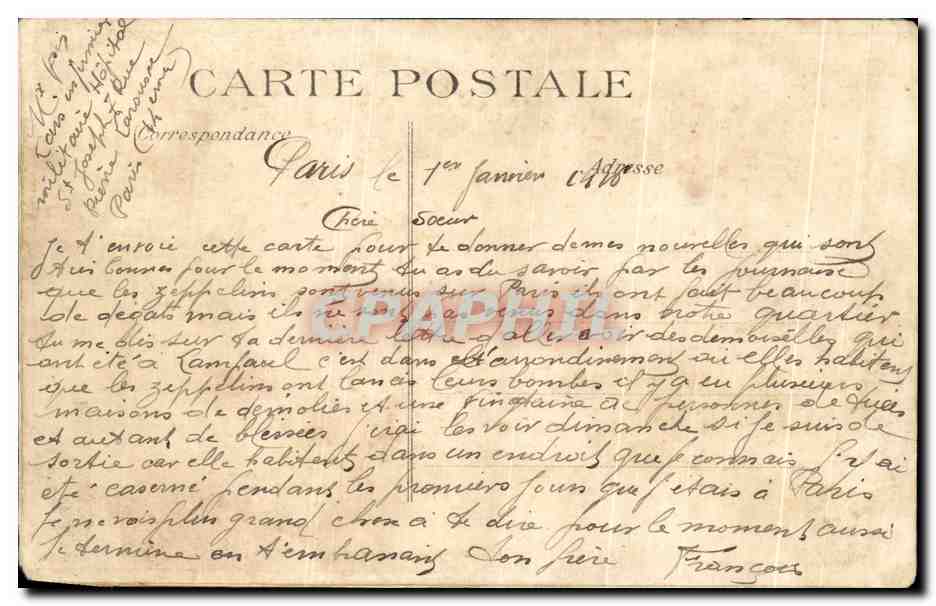 CARTE POSTALE
Correspondance
Adresse
infirmier
militaire Hôpital
St Joseph 7 Rue
pierre Larousse
Paris
Paris le 1er Janvier
Chère Soeur
Je t'envoie cette carte pour te donner de mes nouvelles qui sont
très bonnes pour le moment tu as du savoir par les journaux
que les zeppelins sont venus sur Paris ils ont fait beaucoup
de degats mais ils ne sont pas venus dans notre quartier
tu me dis sur ta dernière lettre d'aller voir des demoiselles qui
ont été à Lampaul c'est dans l'arrondissement ou elles habitent
que les zeppelins ont lancés leurs bombes il y a eu plusieurs
maisons de démolies et une vingtaine de personnes de tuées
et autant de blessées j'irai les voir dimanche si je suis de
sortie car elle habitent dans un endroit que je connais j'y ai
été caserné pendant les premiers jours que j'étais à Paris
Je ne vois plus grand chose à te dire pour le moment aussi
Je termine en t'embrassant Ton frère François
CPAPHIL